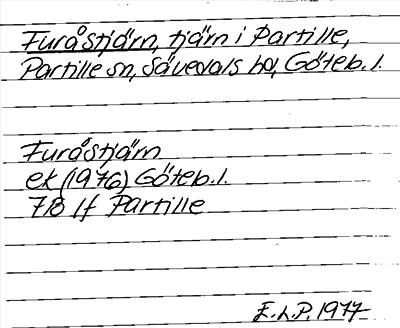 Furåstjärn, tjärn i Partille,
Partille sn, Sävedals hd, Göteb. l.
Furåstjärn
ek (1976) Göteb. l.
7B 1f Partille
E.L.P. 1977